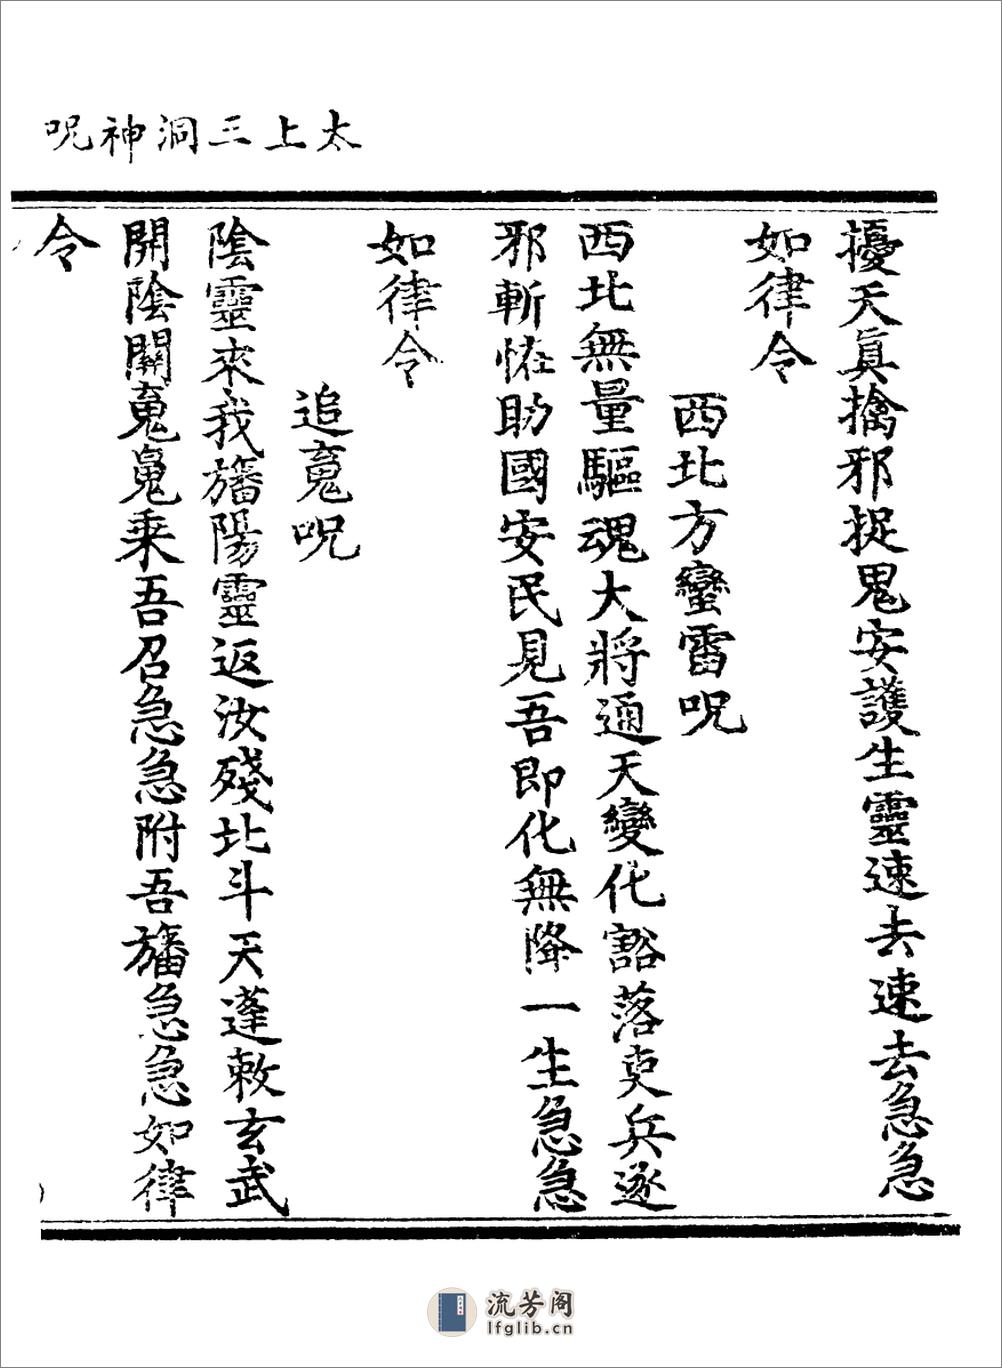 太上三洞神呪
擾天真擒邪捉鬼安護生靈速去速去急急
如律令
西北方蠻雷呪
西北無量驅魂大將通天變化豁落吏兵逐
邪斬怪助國安民見吾即化無降一生急急
如律令
追䰟呪
陰靈來我旛陽靈返汝殘北斗天蓬敕玄武
開陰關䰟鬼乘吾召急急附吾旛急急如律
令
流芳阁
lfglib.cn